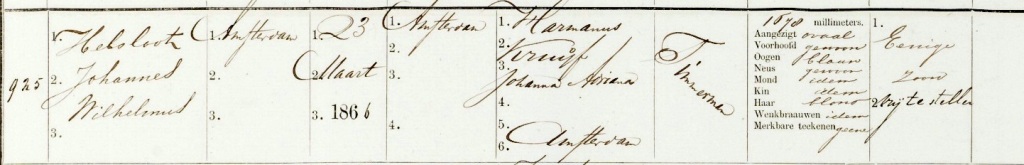 925
1. Hebsloot
2. Johannes
Wilhelmus
3.
1. Amsterdam
2.
3.
1. 23
2. Maart
3. 1866
1. Amsterdam
2.
3.
4.
1. Harmanus
2.
3. Kruijf
Johanna Adriana
4.
5. Amsterdam
6.
Timmerman
1678 millimeters.
Aangezigt ovaal
Voorhoofd gewoon
Oogen blauw
Neus gewoon
Mond idem
Kin idem
Haar blond
Wenkbraauwen idem
Merkbare teekenen geene
1. Eenige
zoon
2. Vrij te stellen